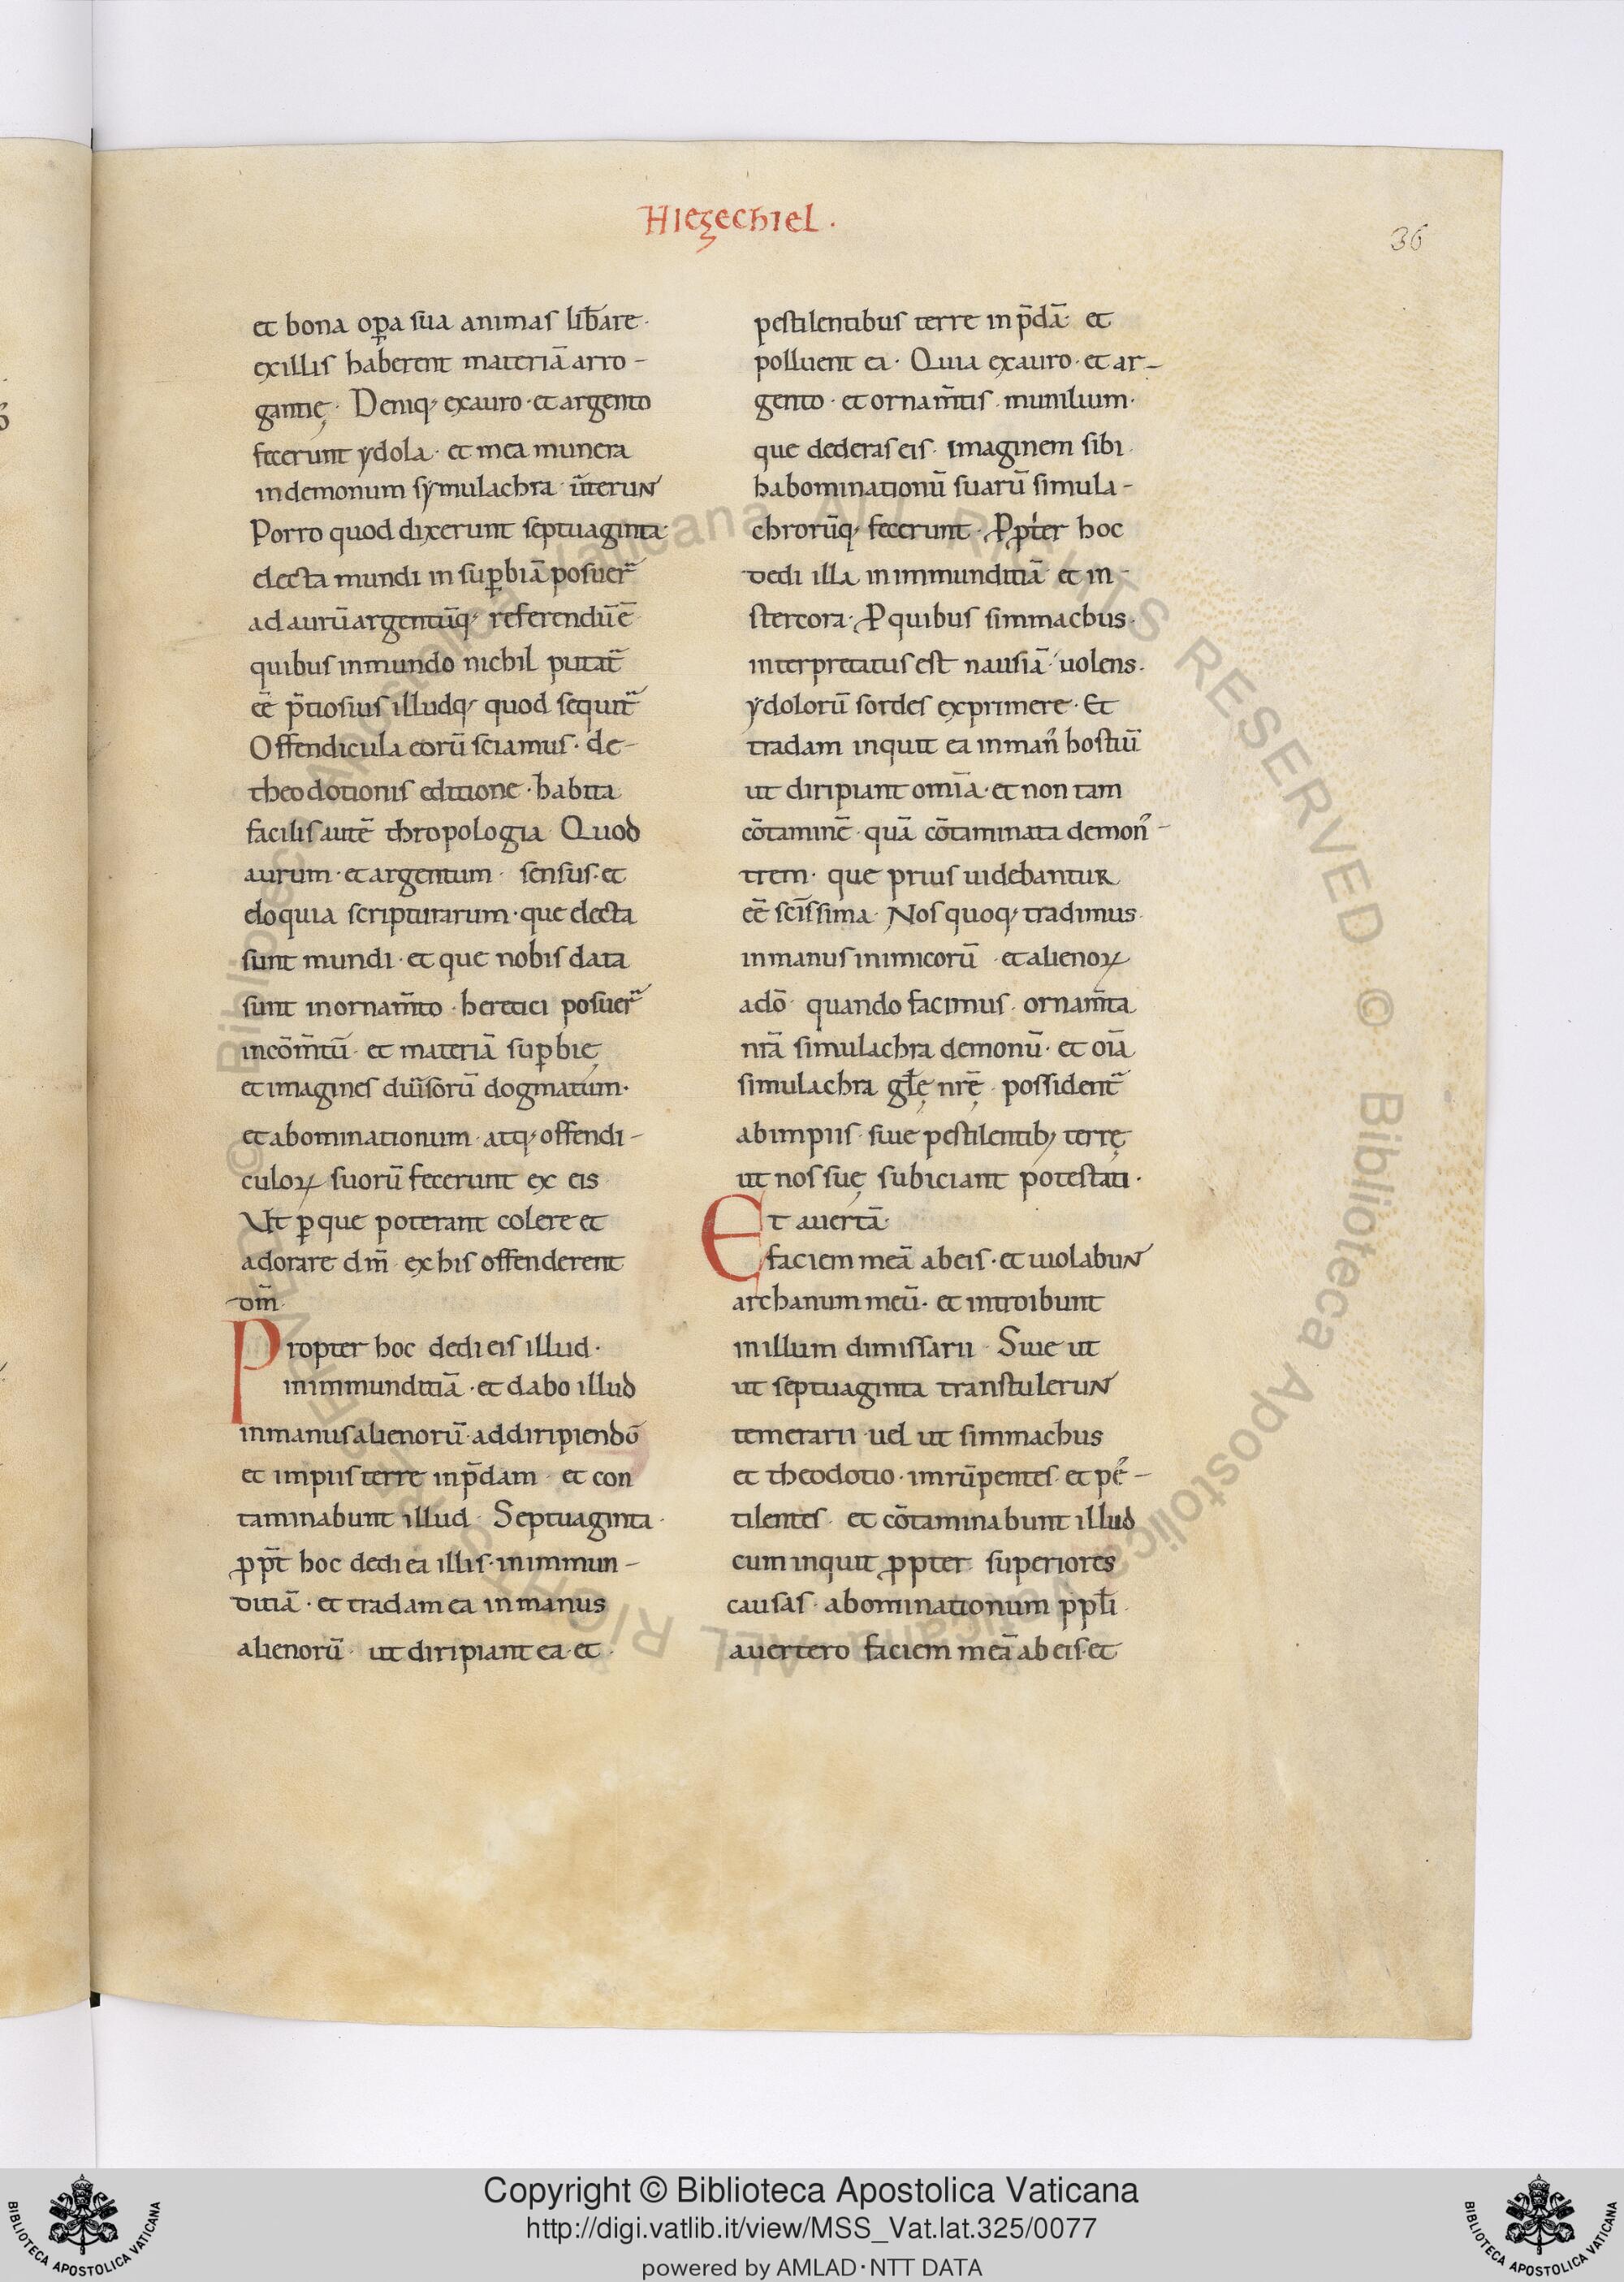 Hiezechiel.
36
et bona oꝑa sua animas lib̄are·
exillis haberent materiā arro-
gantię· Deniq; exauro·et argento
fecerunt ẏdola· et mea munera
indemonum sẏmulachra· ūterunt
Porro quod dixerunt septuaginta·
electa mundi in suꝑbiā posuer̄
ad aurū argentūq; referendū ē
quibus inmundo nichil putat̄
eē p̄tiosius illudq; quod sequit̄
Offendicula eorū sciamus· de-
theodotionis editione·habita
facilis autē thropologia· Quod
aurum·et argentum· sensus·et
eloquia scripturarum·que electa
sunt mundi·et que nobis data
sunt inornam̄to·heretici posuer̄
incōm̄tū· et materiā suꝑbię
et imagines diu̅sorū dogmatum·
et abominationum·atq; offendi-
culoꝝ suorū fecerunt ex eis
Ut ꝑ que poterant colere et
adorare dm̄ ex his offenderent
dm̄·
Propter hoc dedi eis illud·
inimmunditiā·et dabo illud
inmanus alienorū·addiripiendō
et impiis terre inp̄dam· et con
taminabunt illud· Septuaginta·
ꝓpt̄ hoc dedi ea illis·inimmun-
ditiā·et tradam ea inmanus
alienorū· ut diripiant ea·et·
pestilentibus terre in p̄dā· et
polluent ea· Quia exauro·et ar-
gento·et ornam̄tis·munilium·
que dederas eis· imaginem sibi·
habominationū suarū simula-
chrorūq; fecerunt· Ꝓpter hoc
dedi illa inimmunditiā· et in-
stercora· P quibus simmachus·
interpretatus est nausiā· uolens·
ẏdolorū sordes exprimere· Et
tradam inquit ea inman᾽ hostiū
ut diripiant omīa·et non tam
cōtaminē· quā cōtaminata demon᾽-
trem· que prius uidebantur
eē scīssima· Nos quoq; tradimus·
inmanus inimicorū· et alienoꝝ
adō· quando facimus· ornam̄ta
nr̄a simulachra demonū· et oīa
simulachra gl̄ę nr̄ę· possident̄
abimpiis·siue pestilentib; terrę
ut nos suę subiciant potestati·
Et auertā·
faciem meā abeis·et uiolabunt
archanum meū· et introibunt
inillum dimissarii· Siue ut
ut septuaginta transtulerunt
temerarii·uel ut simmachus
et theodotio·inrūpentes·et pe᾽-
tilentes· et cōtaminabunt illud
cum inquit ꝓpter superiores
causas·abominationum ppl̄i·
auertero faciem meā ab eis·et
Copyright © Biblioteca Apostolica Vaticana
http://digi.vatlib.it/view/MSS_Vat.lat.325/0077
powered by AMLAD·NTT DATA
BIBLIOTECA APOSTOLICA VATICANA
BIBLIOTECA APOSTOLICA VATICANA